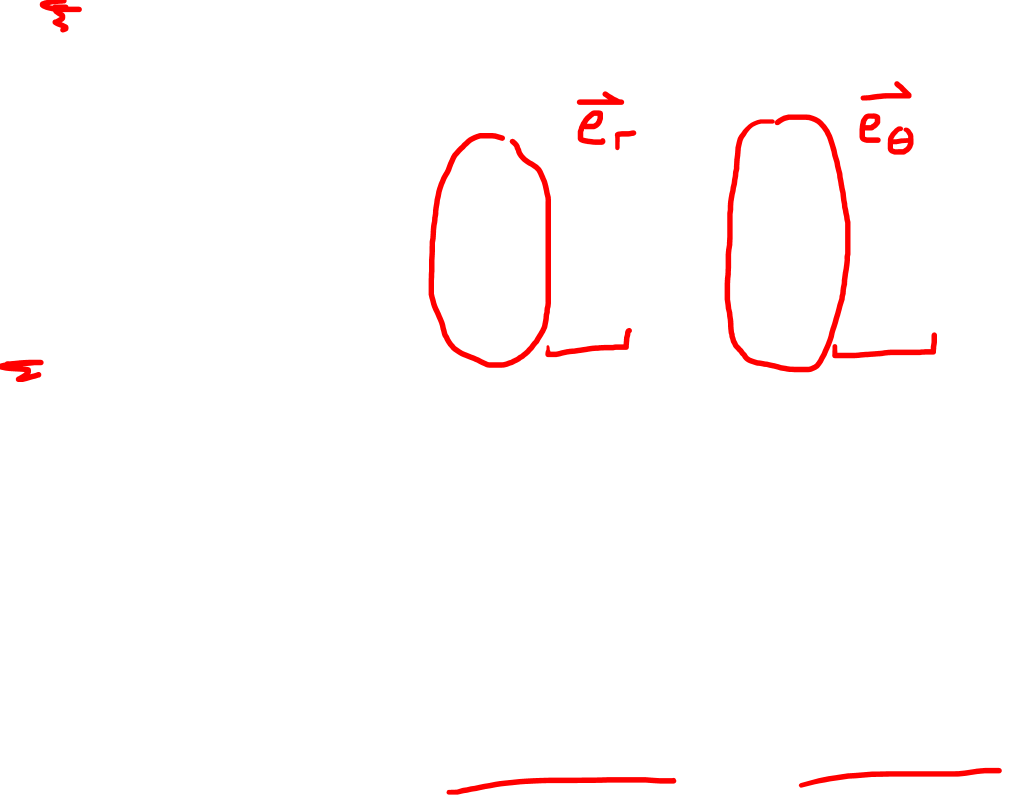 $\vec{e}_r$ $\vec{e}_\theta$